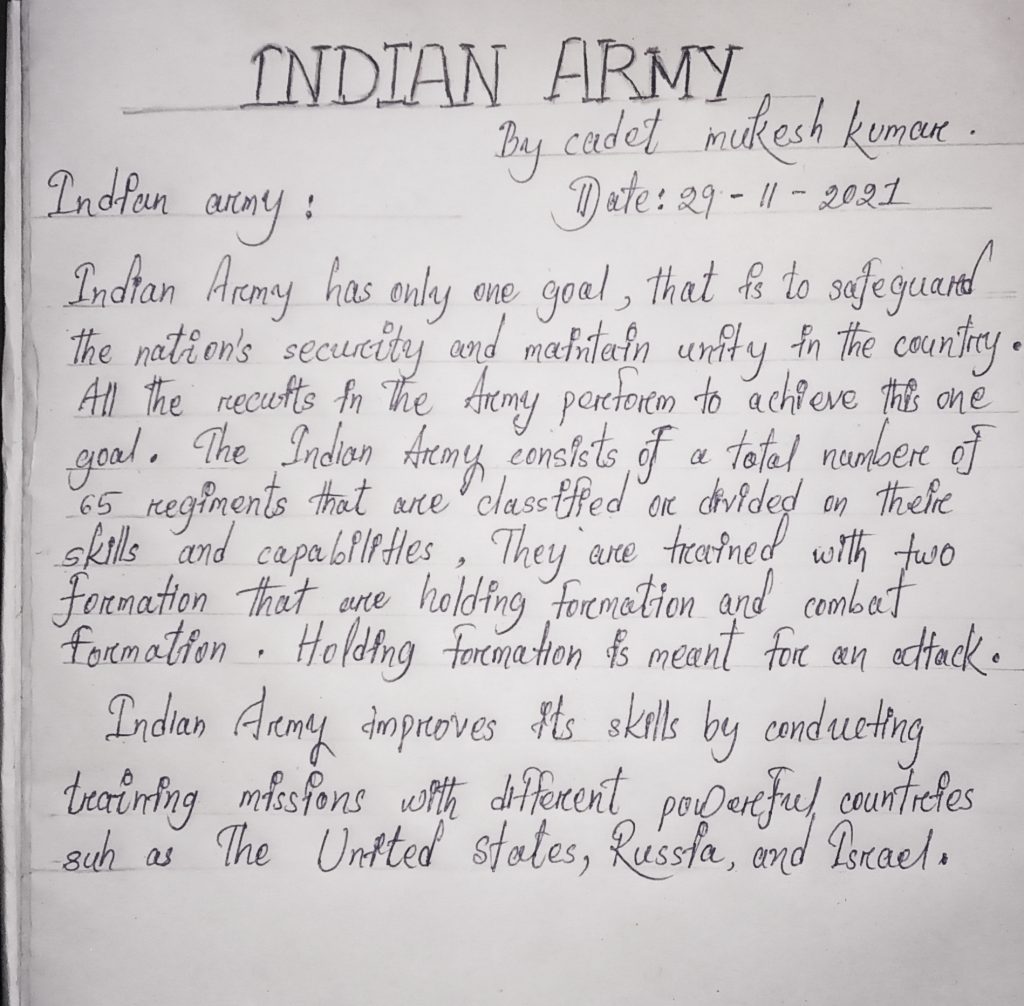 INDIAN ARMY
By cadet mukesh kumar.
Indian army :
Date: 29 - 11 - 2021
Indian Army has only one goal, that is to safeguard
the nation's security and maintain unity in the country.
All the recuits in the Army perform to achieve this one
goal. The Indian Army consists of a total number of
65 regiments that are classified or divided on their
skills and capabilities, They are trained with two
formation that are holding formation and combat
formation. Holding formation is meant for an attack.
Indian Army improves its skills by conducting
training missions with different powerful countries
suh as The United states, Russia, and Israel.